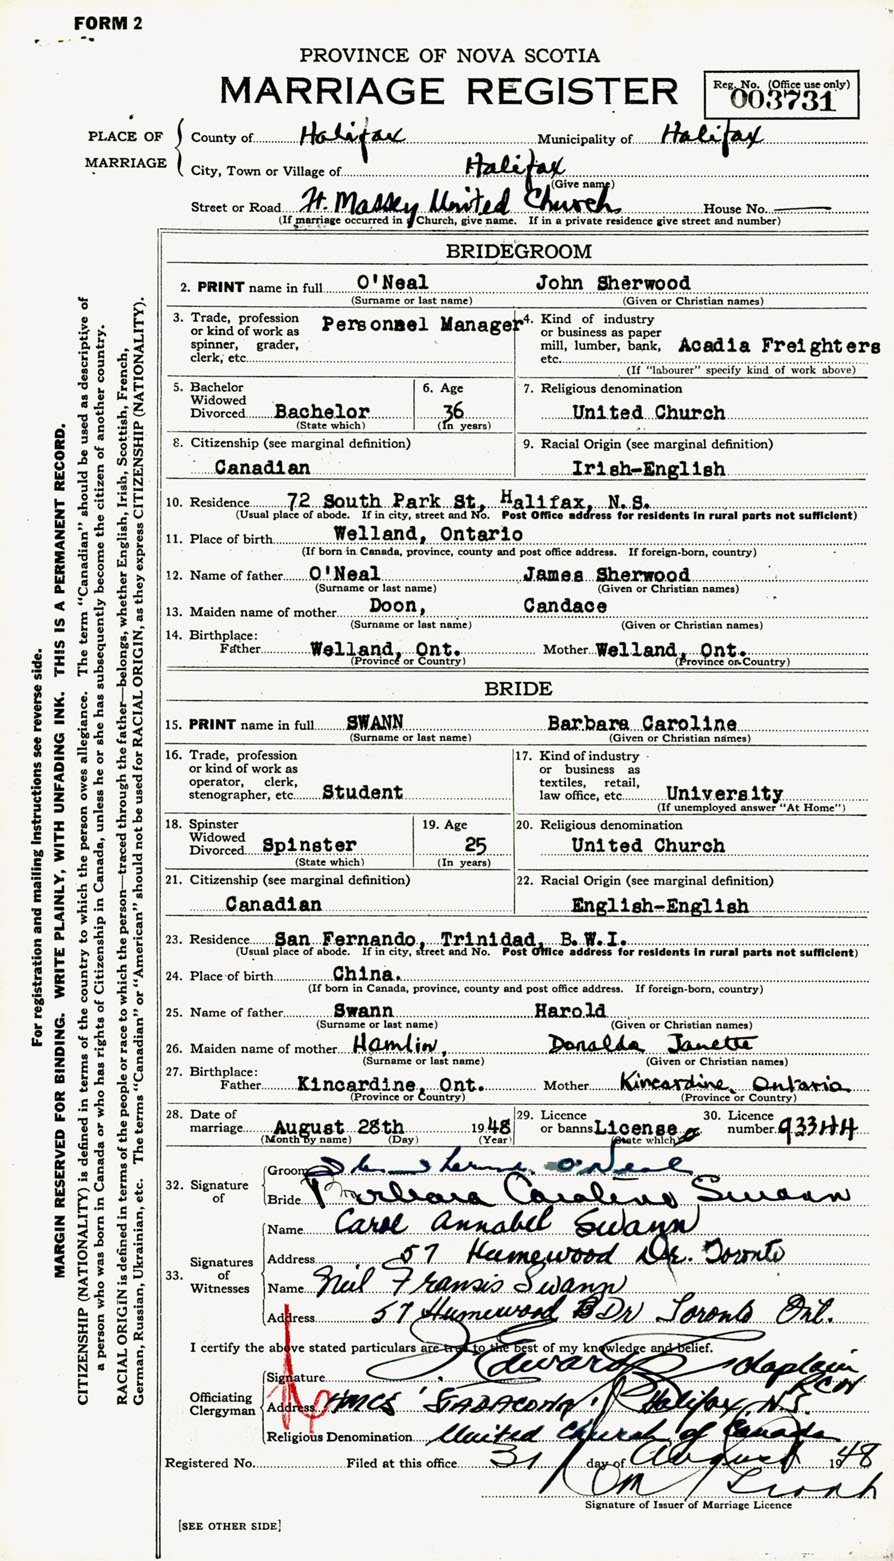 FORM 2
PROVINCE OF NOVA SCOTIA
MARRIAGE REGISTER
Reg. No. (Office use only)
003731
PLACE OF MARRIAGE
County of Halifax Municipality of Halifax
City, Town or Village of Halifax
(Give name)
Street or Road Ft. Massey United Church House No.
(If marriage occurred in a Church, give name. If in a private residence give street and number)
BRIDEGROOM
2. PRINT name in full O'Neal John Sherwood
(Surname or last name) (Given or Christian names)
3. Trade, profession or kind of work as spinner, grader, clerk, etc. Personnel Manager
4. Kind of industry or business as paper mill, lumber, bank, etc. Acadia Freighters
(If "labourer" specify kind of work above)
5. Bachelor Widowed Divorced Bachelor
(State which)
6. Age 36
(In years)
7. Religious denomination
United Church
8. Citizenship (see marginal definition)
Canadian
9. Racial Origin (see marginal definition)
Irish-English
10. Residence 72 South Park St, Halifax, N.S.
(Usual place of abode. If in city, street and No. Post Office address for residents in rural parts not sufficient)
11. Place of birth Welland, Ontario
(If born in Canada, province, county and post office address. If foreign-born, country)
12. Name of father O'Neal James Sherwood
(Surname or last name) (Given or Christian names)
13. Maiden name of mother Doon, Candace
(Surname or last name) (Given or Christian names)
14. Birthplace:
Father Welland, Ont. Mother Welland, Ont.
(Province or Country) (Province or Country)
BRIDE
15. PRINT name in full SWANN Barbara Caroline
(Surname or last name) (Given or Christian names)
16. Trade, profession or kind of work as operator, clerk, stenographer, etc. Student
17. Kind of industry or business as textiles, retail, law office, etc. University
(If unemployed answer "At Home")
18. Spinster Widowed Divorced Spinster
(State which)
19. Age 25
(In years)
20. Religious denomination
United Church
21. Citizenship (see marginal definition)
Canadian
22. Racial Origin (see marginal definition)
English-English
23. Residence San Fernando, Trinidad, B.W.I.
(Usual place of abode. If in city, street and No. Post Office address for residents in rural parts not sufficient)
24. Place of birth China.
(If born in Canada, province, county and post office address. If foreign-born, country)
25. Name of father Swann Harold
(Surname or last name) (Given or Christian names)
26. Maiden name of mother Hamlin, Donalda Janette
(Surname or last name) (Given or Christian names)
27. Birthplace:
Father Kincardine, Ont. Mother Kincardine, Ontario
(Province or Country) (Province or Country)
28. Date of marriage August 28th 1948
(Month by name) (Day) (Year)
29. Licence or banns License
(State which)
30. Licence number 93344
32. Signature of
Groom O'Neal
Bride Barbara Caroline Swann
33. Signatures of Witnesses
Name Carol Annabel Swann
Address 57 Humewood Dr. Toronto
Name Neil Fransis Swann
Address 57 Humewood Dr Toronto Ont.
I certify the above stated particulars are true to the best of my knowledge and belief.
Officiating Clergyman
Signature Edward Chaplain RCN
Address HMCS Halifax, N.S.
Religious Denomination United Church of Canada
Registered No. Filed at this office 31 day of August 1948
Signature of Issuer of Marriage Licence
[SEE OTHER SIDE]
For registration and mailing instructions see reverse side.
MARGIN RESERVED FOR BINDING. WRITE PLAINLY, WITH UNFADING INK. THIS IS A PERMANENT RECORD.
CITIZENSHIP (NATIONALITY) is defined in terms of the country to which the person owes allegiance. The term "Canadian" should be used as descriptive of
a person who was born in Canada or who has rights of Citizenship in Canada, unless he or she has subsequently become the citizen of another country.
RACIAL ORIGIN is defined in terms of the people or race to which the person—traced through the father—belongs, whether English, Irish, Scottish, French,
German, Russian, Ukrainian, etc. The terms "Canadian" or "American" should not be used for RACIAL ORIGIN, as they express CITIZENSHIP (NATIONALITY).